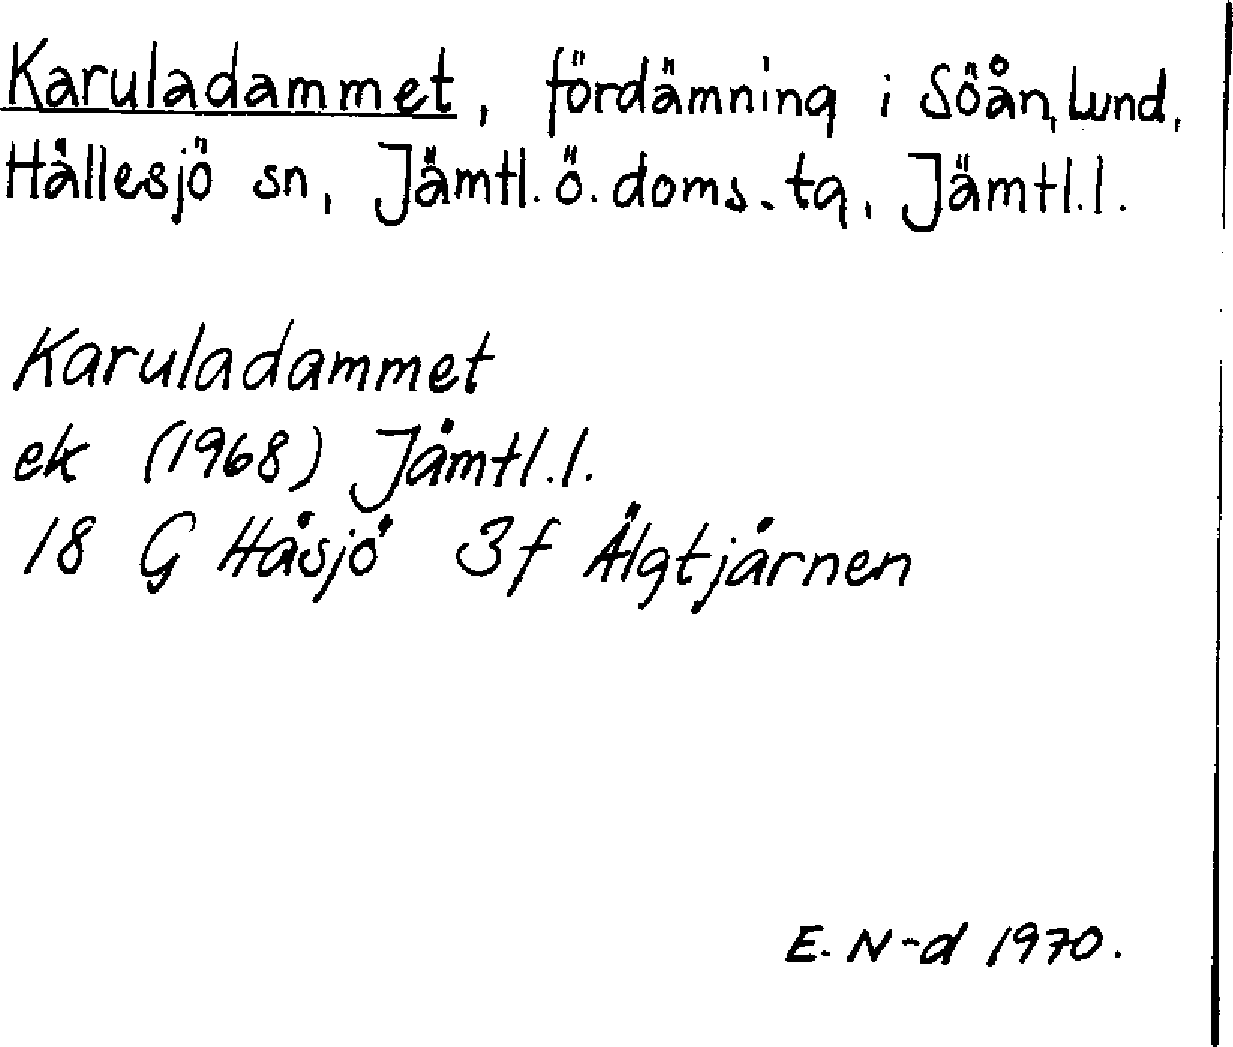 Karuladammet, fördämning i Söån, Lund,
Hällesjö sn, Jämtl. ö. doms. tg, Jämtl. l.
Karuladammet
ek (1968) Jämtl. l.
18 G Håsjö 3f Älgtjärnen
E. N-d 1970.